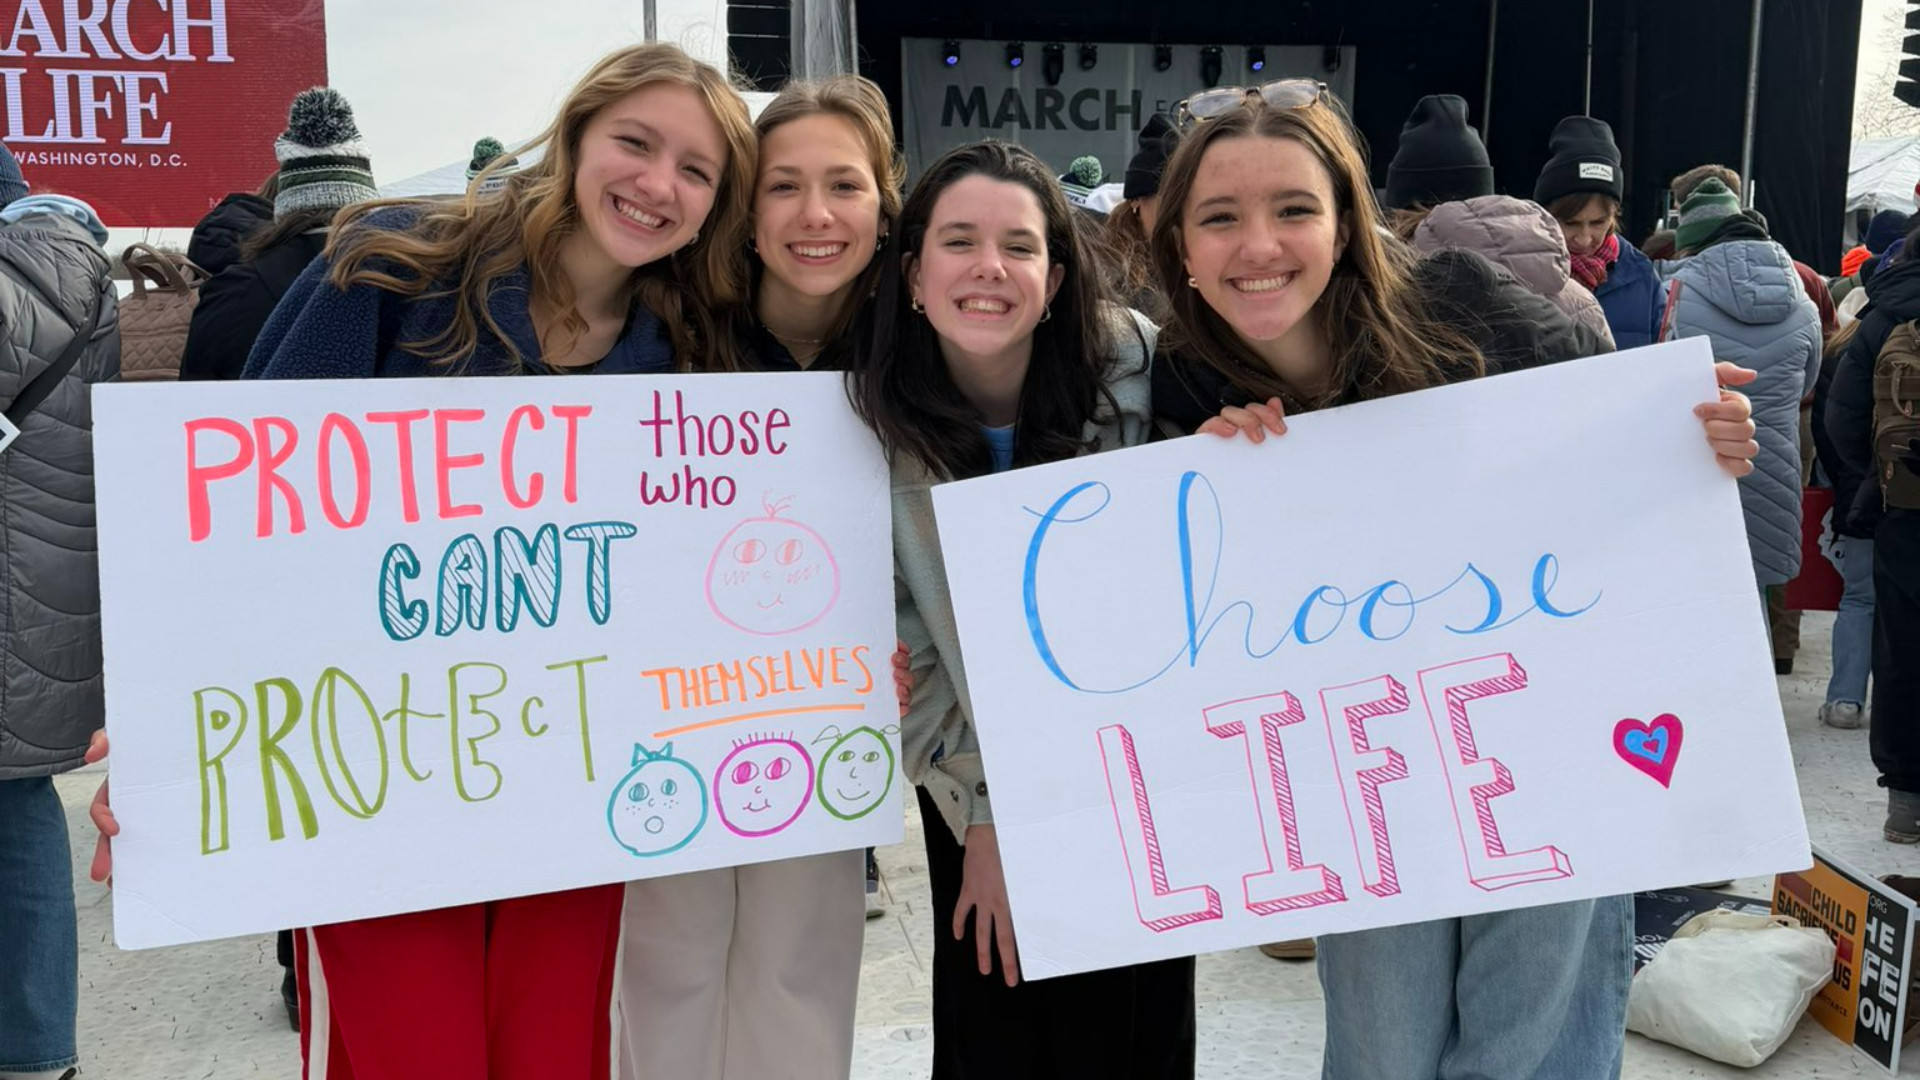 ARCH
LIFE
WASHINGTON, D.C.
MARCH
PROTECT those
who
CANT
PROtEcT THEMSELVES
Choose
LIFE
CHILD
SACRIFICE
US
ORG
HE
FE
ON